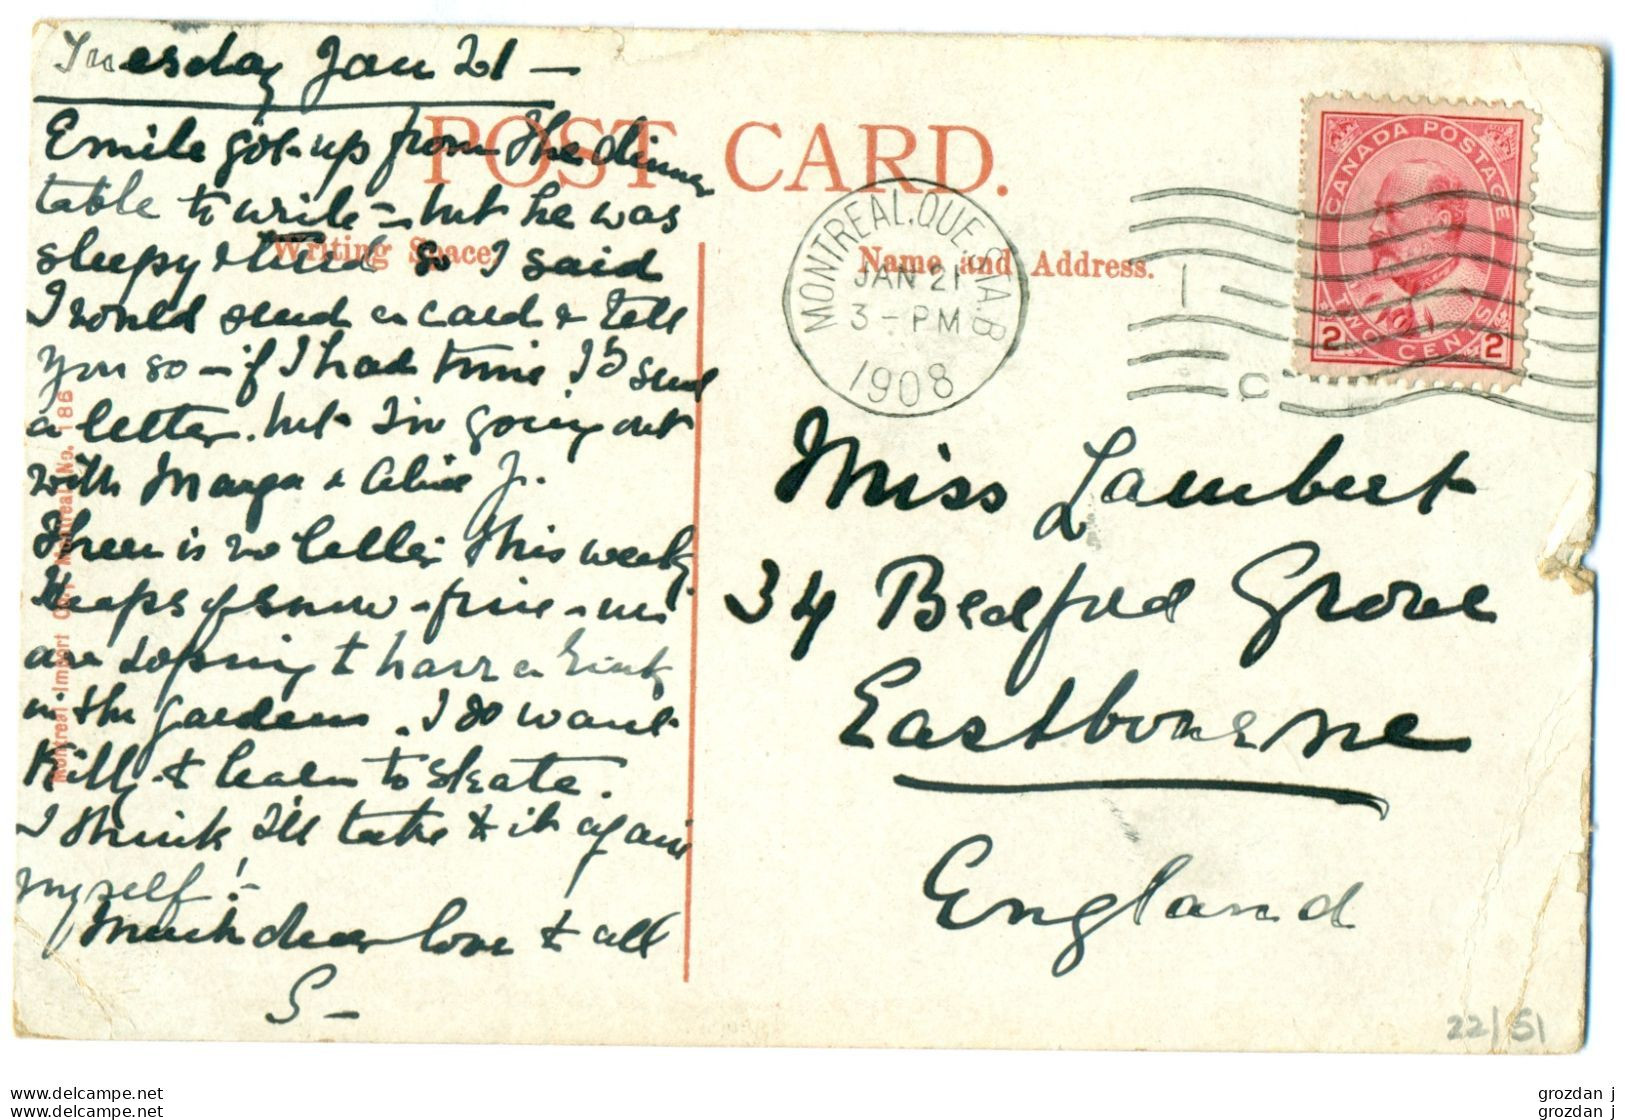 Tuesday Jan 21 —
Emile got up from the dinner
table to write – but he was
sleepy & tired so I said
I would send a card & tell
you so – if I had time I'd send
a letter. but I'm going out
with Marga & Aline J.
There is no letter this week,
Heaps of snow – fine – we
are hoping to have a rink
in the gardens. I do want
Kitty to learn to skate.
I think I'll take to it again
myself!–
Much dear love to all
S –
POST CARD.
Writing Space.
Name and Address.
Montreal Import Co., Montreal, No. 186
MONTREAL, QUE. CA.
JAN 21
3 - PM
1908
C
CANADA POSTAGE
2 TWO CENTS 2
Miss Lambert
34 Bedford Grove
Eastbourne
England
22/51
www.delcampe.net
www.delcampe.net
grozdan j
grozdan j